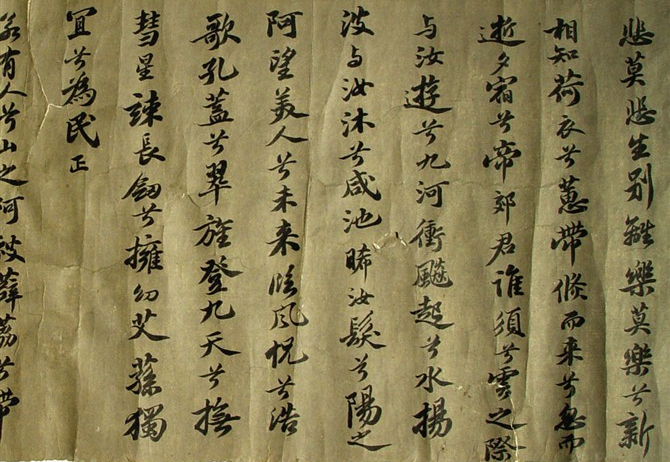 悲莫悲生别離樂莫樂兮新
相知荷衣兮蕙帶倏而来兮忽而
逝夕宿兮帝郊君誰須兮雲之際
与汝遊兮九河衝飈起兮水揚
波与汝沐兮咸池晞汝髮兮陽之
阿望美人兮未来臨风怳兮浩
歌孔蓋兮翠旌登九天兮撫
彗星竦長劍兮擁幼艾蓀獨
宜兮為民正
若有人兮山之阿被薜荔兮帶